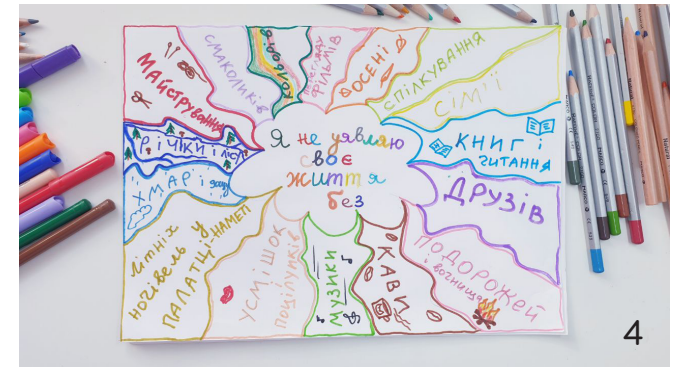 Я не уявляю
своє
життя
без
майстрування
смаколиків
кольорів
перегляду
фільмів
осені
спілкування
сім'ї
книг і
читання
друзів
подорожей
і вогнища
кави
музики
усмішок
поцілунків
літніх
ночівель у
палатці-наметі
хмар і дощу
річки і лісу
4